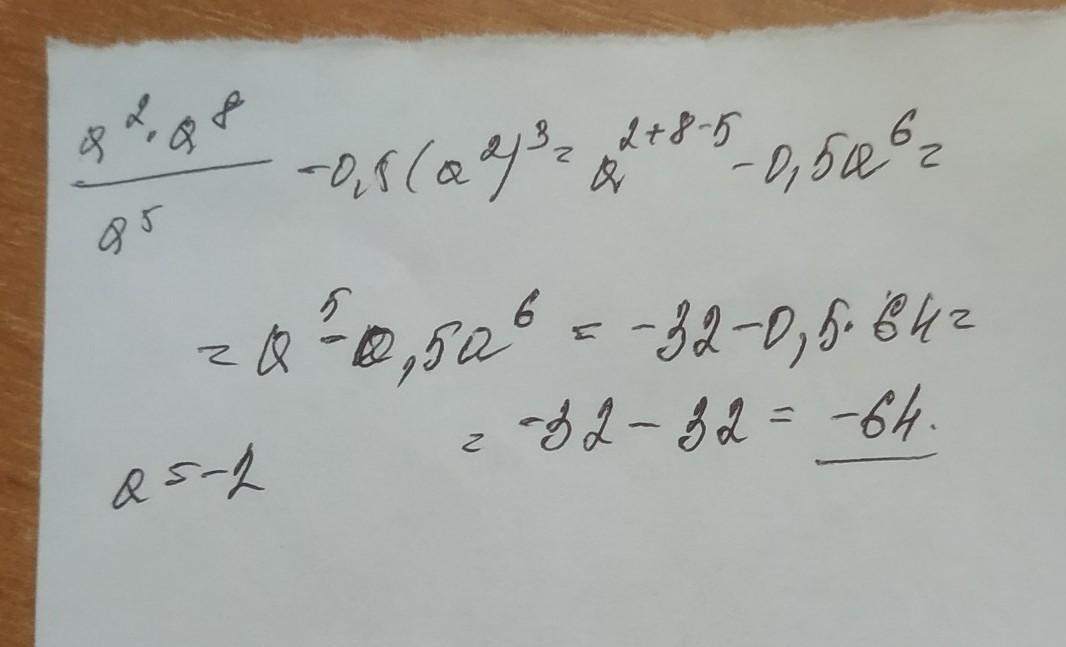 a²·a⁸/a⁵ -0,5(a²)³= a²⁺⁸⁻⁵-0,5a⁶=
=a⁵-0,5a⁶ = -32-0,5·64=
= -32-32 = -64.
a=-2